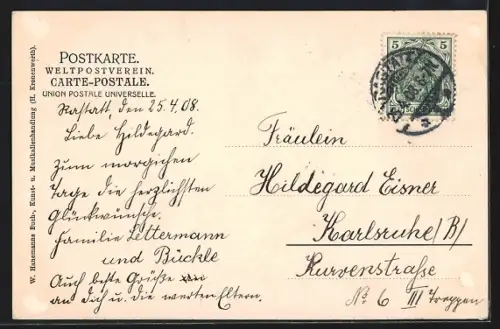 POSTKARTE.
WELTPOSTVEREIN.
CARTE-POSTALE.
UNION POSTALE UNIVERSELLE.
Rastatt, den 25.4.08.
Liebe Hildegard.
Zum morgichen
Tage die herzlichsten
Glückwünsche.
Familie Lettermann
und Bückle
Auch beste Grüße
an dich u. die werten Eltern.
Fräulein
Hildegard Eisner
Karlsruhe/B/
Kurvenstraße
No 6 III Treppen
5 5
W. Hanemanns Buch-, Kunst- u. Musikalienhandlung (H. Kronenwerth).